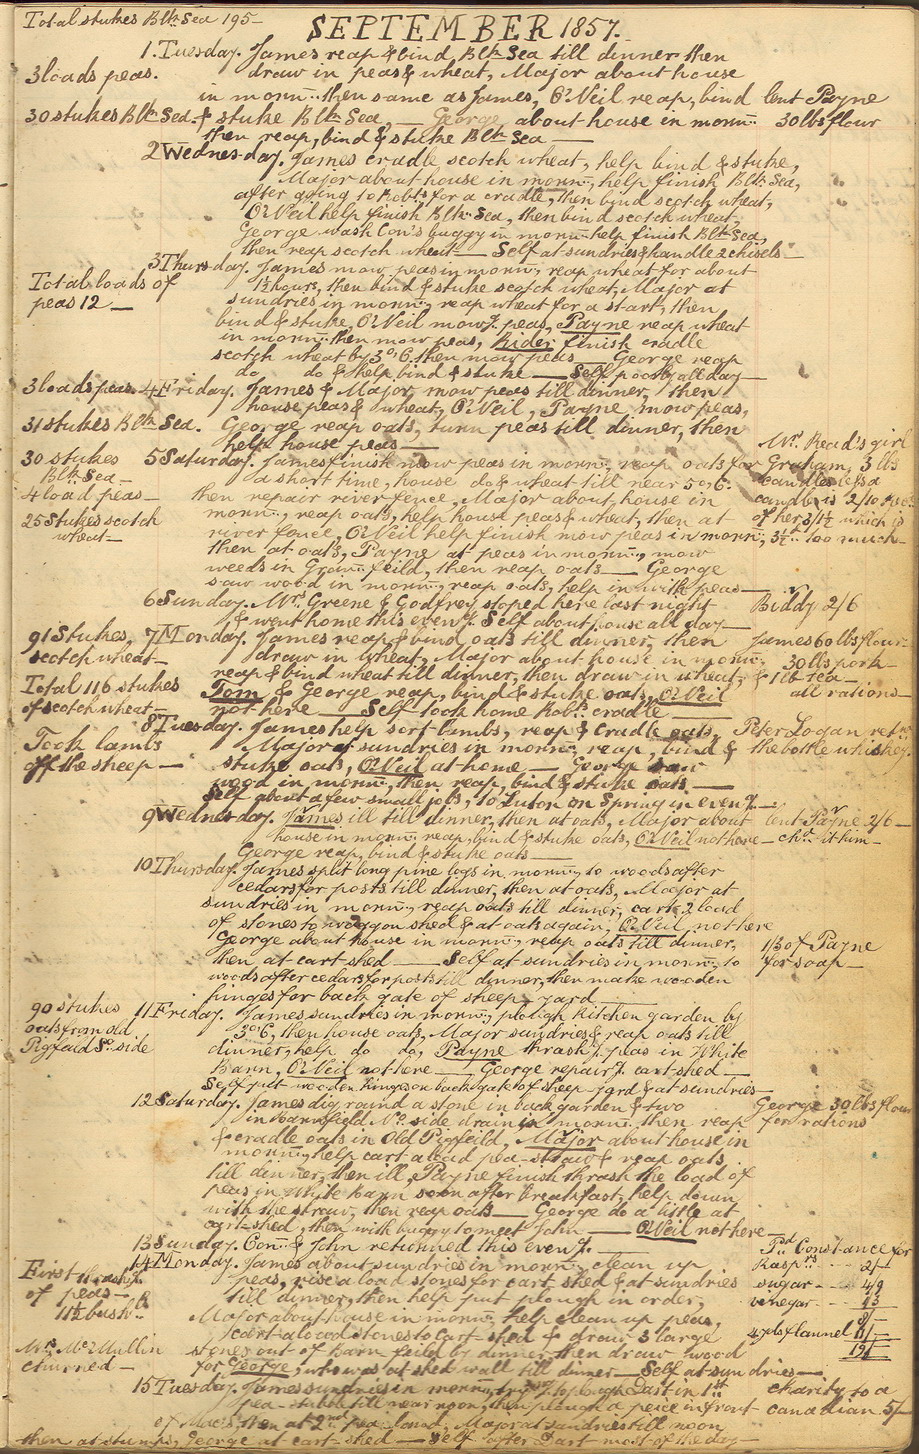 Total stukes Blk Sea 195 –
SEPTEMBER 1857.
1. Tuesday. James reap & bind Blk Sea till dinner then
3 loads peas. draw in peas & wheat, Major about house
in mornn. then same as James, O'Neil reap, bind lent Payne
30 stukes Blk Sea & stuke Blk Sea, — George about house in mornn. 30 lbs flour
then reap, bind & stuke Blk Sea —
2 Wednesday. James cradle scotch wheat, help bind & stuke,
Major about house in mornn, help finish Blk Sea,
after going to Robts for a cradle, then bind scotch wheat,
O'Neil help finish Blk Sea, then bind scotch wheat,
George wash Con's buggy in mornn help finish Blk Sea,
then reap scotch wheat — Self at sundries & handle 2 chisels —
3 Thursday. James mow peas in mornn, reap wheat for about
Total loads of 1½ hours, then bind & stuke scotch wheat, Major at
peas 12 — sundries in mornn, reap wheat for a start, then
bind & stuke, O'Neil mowg peas, Payne reap wheat
in mornn. then mow peas, Rider finish cradle
scotch wheat by 3 o', 6. then mow peas — George reap
do do & help bind & stuke — Self poorly all day —
3 loads peas. 4 Friday. James & Major, mow peas till dinner, then
house peas & wheat, O'Neil, Payne mow peas,
31 stukes Blk Sea. George reap oats, turn peas till dinner, then
help house peas —
Mrs Read's girl
30 stukes 5 Saturday. James finish mow peas in mornn, reap oats for Graham, 3 lbs
Blk Sea — a short time, house do & wheat till near 5 o', 6. candles less a
4 load peas — then repair river fence, Major about house in candle is 2/10
25 Stukes scotch mornn, reap oats, help house peas & wheat, then at of her 3/1½ which is
wheat — river fence, O'Neil help finish mow peas in mornn, 3½ too much —
then at oats, Payne at peas in mornn, mow
weeds in Grown feild, then reap oats — George
saw wood in mornn, reap oats, help in with peas —
6 Sunday. Mrs Greene & Godfrey stoped here last night Biddy 2/6
& went home this eveng. Self about house all day —
91 Stukes, 7 Monday. James reap & bind oats till dinner, then James 60 lbs flour —
scotch wheat — draw in wheat, Major about house in mornn, 30 lbs pork —
reap & bind wheat till dinner, then draw in wheat, & 1 lb tea —
Total 116 stukes Tom & George reap, bind & stuke oats, O'Neil all rations —
of scotch wheat — not here — Self took home Robts cradle —
8 Tuesday. James help sort lambs, reap & cradle oats, Peter Logan retn
Took lambs Major at sundries in mornn, reap, bind & the bottle whiskey.
off the sheep — stuke oats, O'Neil at home — George saw
wood in mornn, then reap, bind & stuke oats —
Self about a few small jobs, to Luton on Spring in eveng. —
9 Wednesday. James ill till dinner, then at oats, Major about lent Payne 2/6 —
house in mornn reap, bind & stuke oats, O'Neil not here — chd. it him —
George reap, bind & stuke oats —
10 Thursday. James split long pine logs in mornn, to woods after
cedars for posts till dinner, then at oats, Major at
sundries in mornn, reap oats till dinner, cart 2 load
of stones to waggon shed & at oats again, O'Neil not here
George about house in mornn, reap oats till dinner, 1/3 of Payne
then at cart shed — Self at sundries in mornn, to for soap —
woods after cedars for posts till dinner, then make wooden
hinges for back gate of sheep-yard —
90 stukes 11 Friday. James sundries in mornn, plough kitchen garden by
oats from old 3 o' 6, then house oats, Major sundries & reap oats till
Pigfeild So side dinner, help do do, Payne thrashg peas in White
Barn, O'Neil not here — George repairg cart-shed —
Self put wooden hinges on back gate of sheep-yard & at sundries —
12 Saturday. James dig round a stone in back garden & two George 30 lbs flour
in Barn feild No. side drain in mornn then reap for rations
& cradle oats in Old Pigfeild, Major about house in
mornn, help cart a load pea-straw & reap oats
till dinner, then ill, Payne finish thrash the load of
peas in White Barn soon after breakfast, help down
with the straw, then reap oats — George do a little at
cart-shed, then with buggy to meet John — O'Neil not here
13 Sunday. Con. & John returned this eveng. Pd Constance for
14 Monday. James about sundries in mornn, clean up Raspds. 2/–
First thrashg peas, rise a load stones for cart shed & at sundries sugar — 4/9
of peas — till dinner, then help put plough in order, vinegar — 4/3
11½ bushls Major about house in mornn, help clean up peas, 8/–
cart a load stones to cart shed & draw 3 large 4 yds flannel 11/–
Mrs McMullin stones out of Barn feild by dinner, then draw wood 19/–
churned — for George, who was at shed wall till dinner — Self at sundries —
15 Tuesday. James sundries in mornn, to plough Dart in 1st charity to a
pea-stubble till near noon, then plough a peice in front canadian 5/–
of Mac's, then at 2nd pea-land, Major at sundries till noon
then at stumps, George at cart-shed — Self after Dart most of the day —